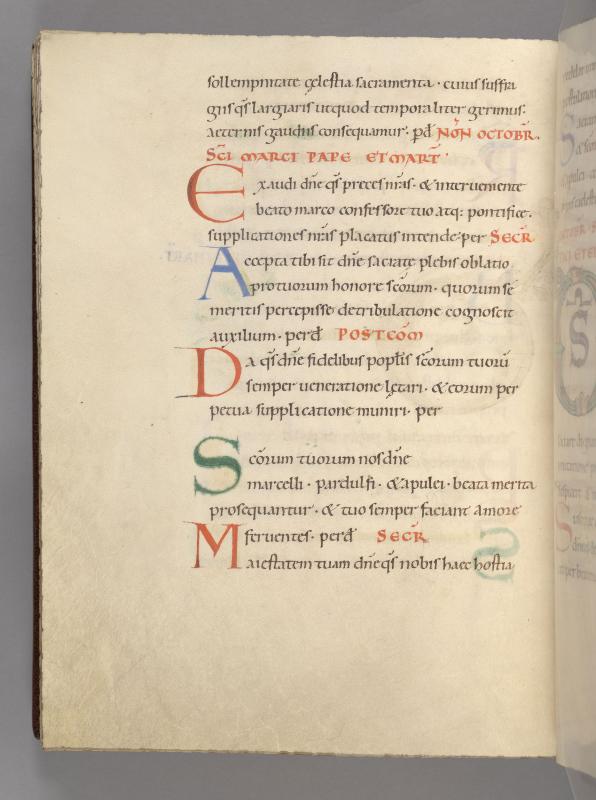 sollempnitate cęlestia sacramenta · cuius suffra
giis q̄s largiaris ut quod temporaliter gerimus ·
aeternis gaudiis consequamur · p̄d NŌN OCTOBR̄ ·
SC̄I MARCI PAPE ET MART̄ ·
Exaudi dn̄e q̄s preces nr̄as · & interueniente
beato marco confessore tuo atq: pontifice ·
supplicationes nr̄as placatus intende · per SECR̄
Accepta tibi sit dn̄e sacratę plebis oblatio
pro tuorum honore sc̄orum · quorum se
meritis percepisse de tribulatione cognoscit
auxilium · per d̄ POSTCOM̄
Da q̄s dn̄e fidelibus popl̄is sc̄orum tuorū
semper ueneratione lętari · & eorum per
petua supplicatione muniri · per
Sc̄orum tuorum nos dn̄e
marcelli · pardulfi · & apulei · beata merita
prosequantur · & tuo semper faciant amore
feruentes · per d̄ SECR̄
Maiestatem tuam dn̄e q̄s nobis haec hostia